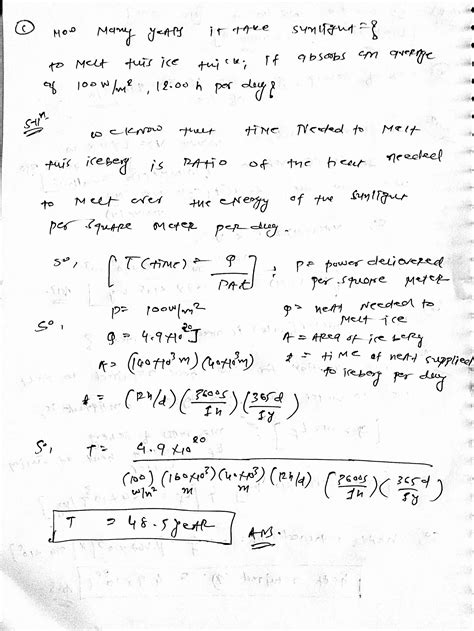 (c) How many years it take sunlight
to melt this ice thick, if absorbs an average
of 100 W/m², 12.00 h per day?
Solⁿ
we know that time needed to melt
this iceberg is ratio of the heat needed
to melt over the energy of the sunlight
per square meter per day.
So, [T (time) = Q / PAt] ; P = power delivered per square meter
P = 100 W/m² Q = heat needed to melt ice
So, Q = 4.9×10²⁰ J A = Area of ice berg
A = (160×10³ m)(40×10³ m) t = time of heat supplied to iceberg per day
t = (12h/d) (3600s / 1h) (365d / 1y)
So, T = 4.9×10²⁰ / (100) W/m² (160×10³) m (40×10³) m (12h/d) (3600s / 1h) (365d / 1y)
T = 48.5 year Ans.